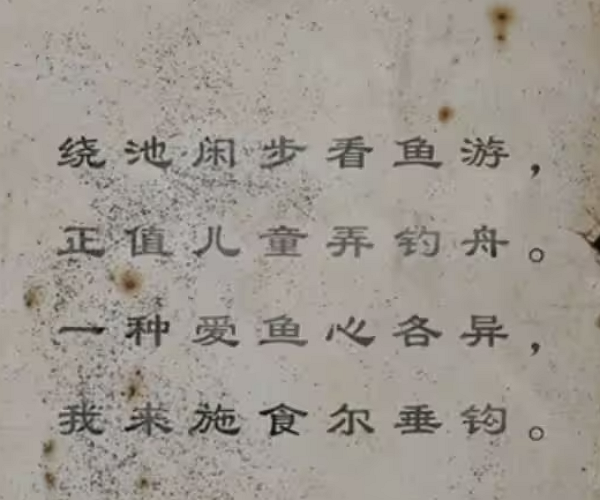 绕池闲步看鱼游，
正值儿童弄钓舟。
一种爱鱼心各异，
我来施食尔垂钩。